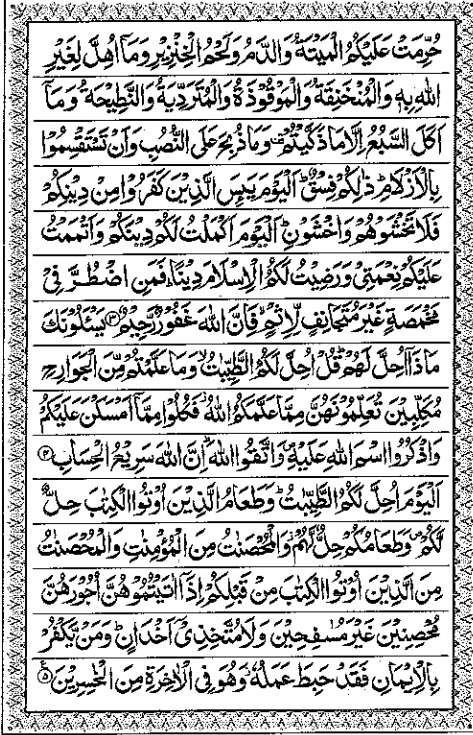 حُرِّمَتْ عَلَيْكُمُ الْمَيْتَةُ وَالدَّمُ وَلَحْمُ الْخِنْزِيْرِ وَمَاۤ اُهِلَّ لِغَيْرِ
اللّٰهِ بِهٖ وَالْمُنْخَنِقَةُ وَالْمَوْقُوْذَةُ وَالْمُتَرَدِّيَةُ وَالنَّطِيْحَةُ وَمَاۤ
اَكَلَ السَّبُعُ اِلَّا مَا ذَكَّيْتُمْ وَمَا ذُبِحَ عَلَى النُّصُبِ وَاَنْ تَسْتَقْسِمُوْا
بِالْاَزْلَامِ ؕ ذٰلِكُمْ فِسْقٌ ؕ اَلْيَوْمَ يَىِٕسَ الَّذِيْنَ كَفَرُوْا مِنْ دِيْنِكُمْ
فَلَا تَخْشَوْهُمْ وَاخْشَوْنِ ؕ اَلْيَوْمَ اَكْمَلْتُ لَكُمْ دِيْنَكُمْ وَاَتْمَمْتُ
عَلَيْكُمْ نِعْمَتِيْ وَرَضِيْتُ لَكُمُ الْاِسْلَامَ دِيْنًا ؕ فَمَنِ اضْطُرَّ فِيْ
مَخْمَصَةٍ غَيْرَ مُتَجَانِفٍ لِّاِثْمٍ ۙ فَاِنَّ اللّٰهَ غَفُوْرٌ رَّحِيْمٌ ۝۳ يَسْـَٔلُوْنَكَ
مَاذَاۤ اُحِلَّ لَهُمْ ؕ قُلْ اُحِلَّ لَكُمُ الطَّيِّبٰتُ ۙ وَمَا عَلَّمْتُمْ مِّنَ الْجَوَارِحِ
مُكَلِّبِيْنَ تُعَلِّمُوْنَهُنَّ مِمَّا عَلَّمَكُمُ اللّٰهُ ؗ فَكُلُوْا مِمَّاۤ اَمْسَكْنَ عَلَيْكُمْ
وَاذْكُرُوا اسْمَ اللّٰهِ عَلَيْهِ ۪ وَاتَّقُوا اللّٰهَ ؕ اِنَّ اللّٰهَ سَرِيْعُ الْحِسَابِ ۝۴
اَلْيَوْمَ اُحِلَّ لَكُمُ الطَّيِّبٰتُ ؕ وَطَعَامُ الَّذِيْنَ اُوْتُوا الْكِتٰبَ حِلٌّ
لَّكُمْ ۪ وَطَعَامُكُمْ حِلٌّ لَّهُمْ ؗ وَالْمُحْصَنٰتُ مِنَ الْمُؤْمِنٰتِ وَالْمُحْصَنٰتُ
مِنَ الَّذِيْنَ اُوْتُوا الْكِتٰبَ مِنْ قَبْلِكُمْ اِذَاۤ اٰتَيْتُمُوْهُنَّ اُجُوْرَهُنَّ
مُحْصِنِيْنَ غَيْرَ مُسٰفِحِيْنَ وَلَا مُتَّخِذِيْۤ اَخْدَانٍ ؕ وَمَنْ يَّكْفُرْ
بِالْاِيْمَانِ فَقَدْ حَبِطَ عَمَلُهٗ ؗ وَهُوَ فِي الْاٰخِرَةِ مِنَ الْخٰسِرِيْنَ ۝۵